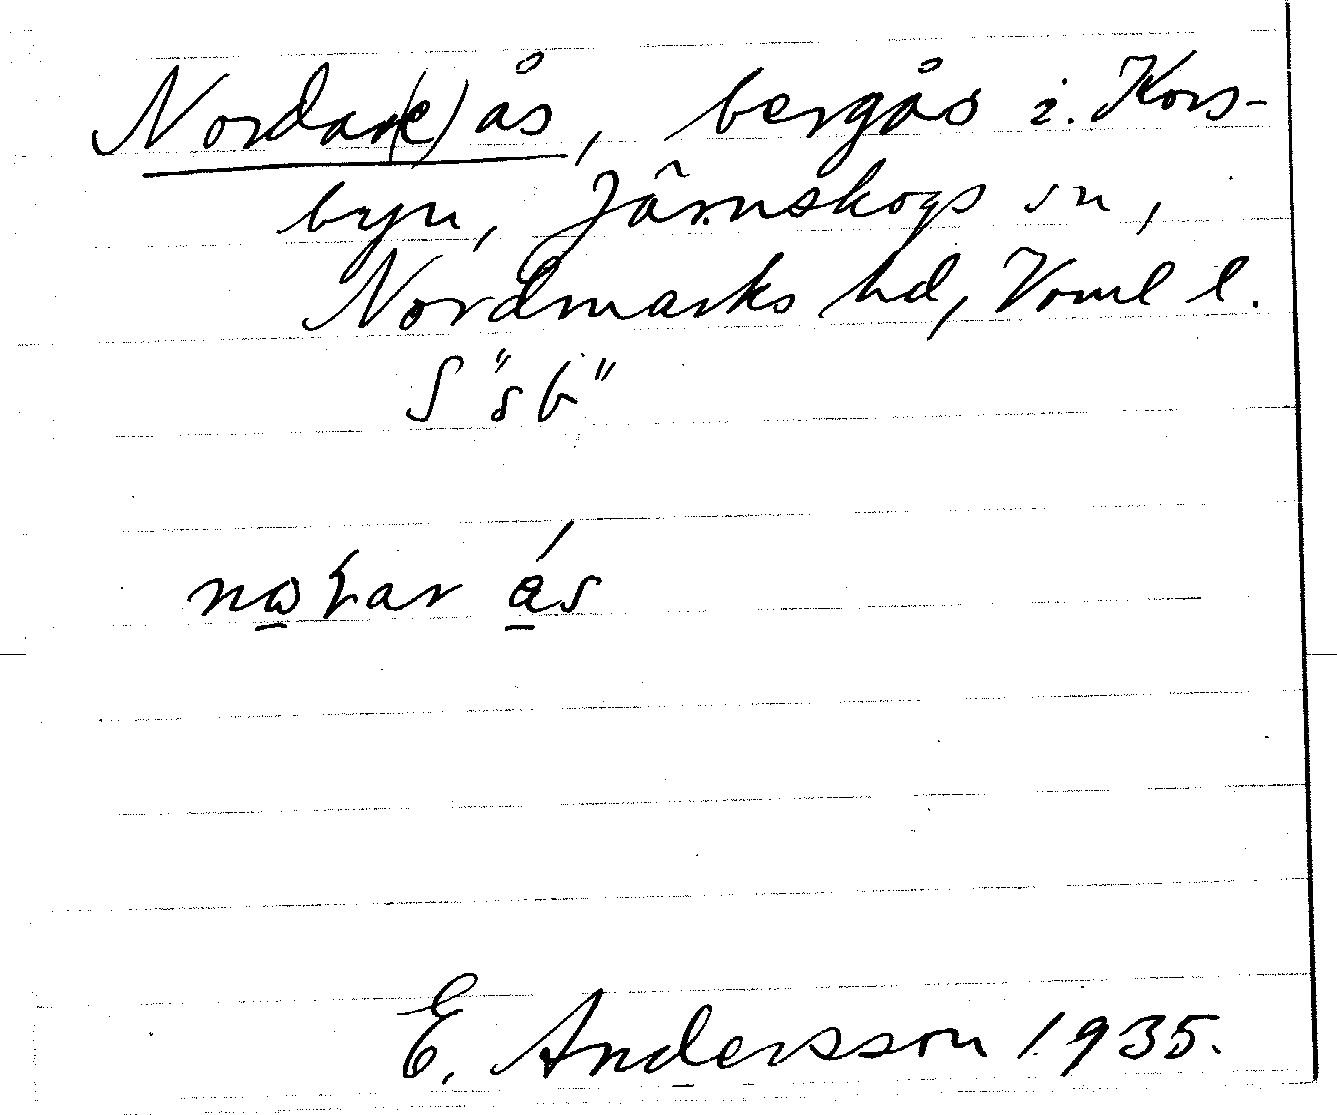 Nordar(e)ås, bergås i. Kors-
byn, Järnskogs sn,
Nordmarks hd, Vrml l.
S "sb"
E. Andersson 1935.